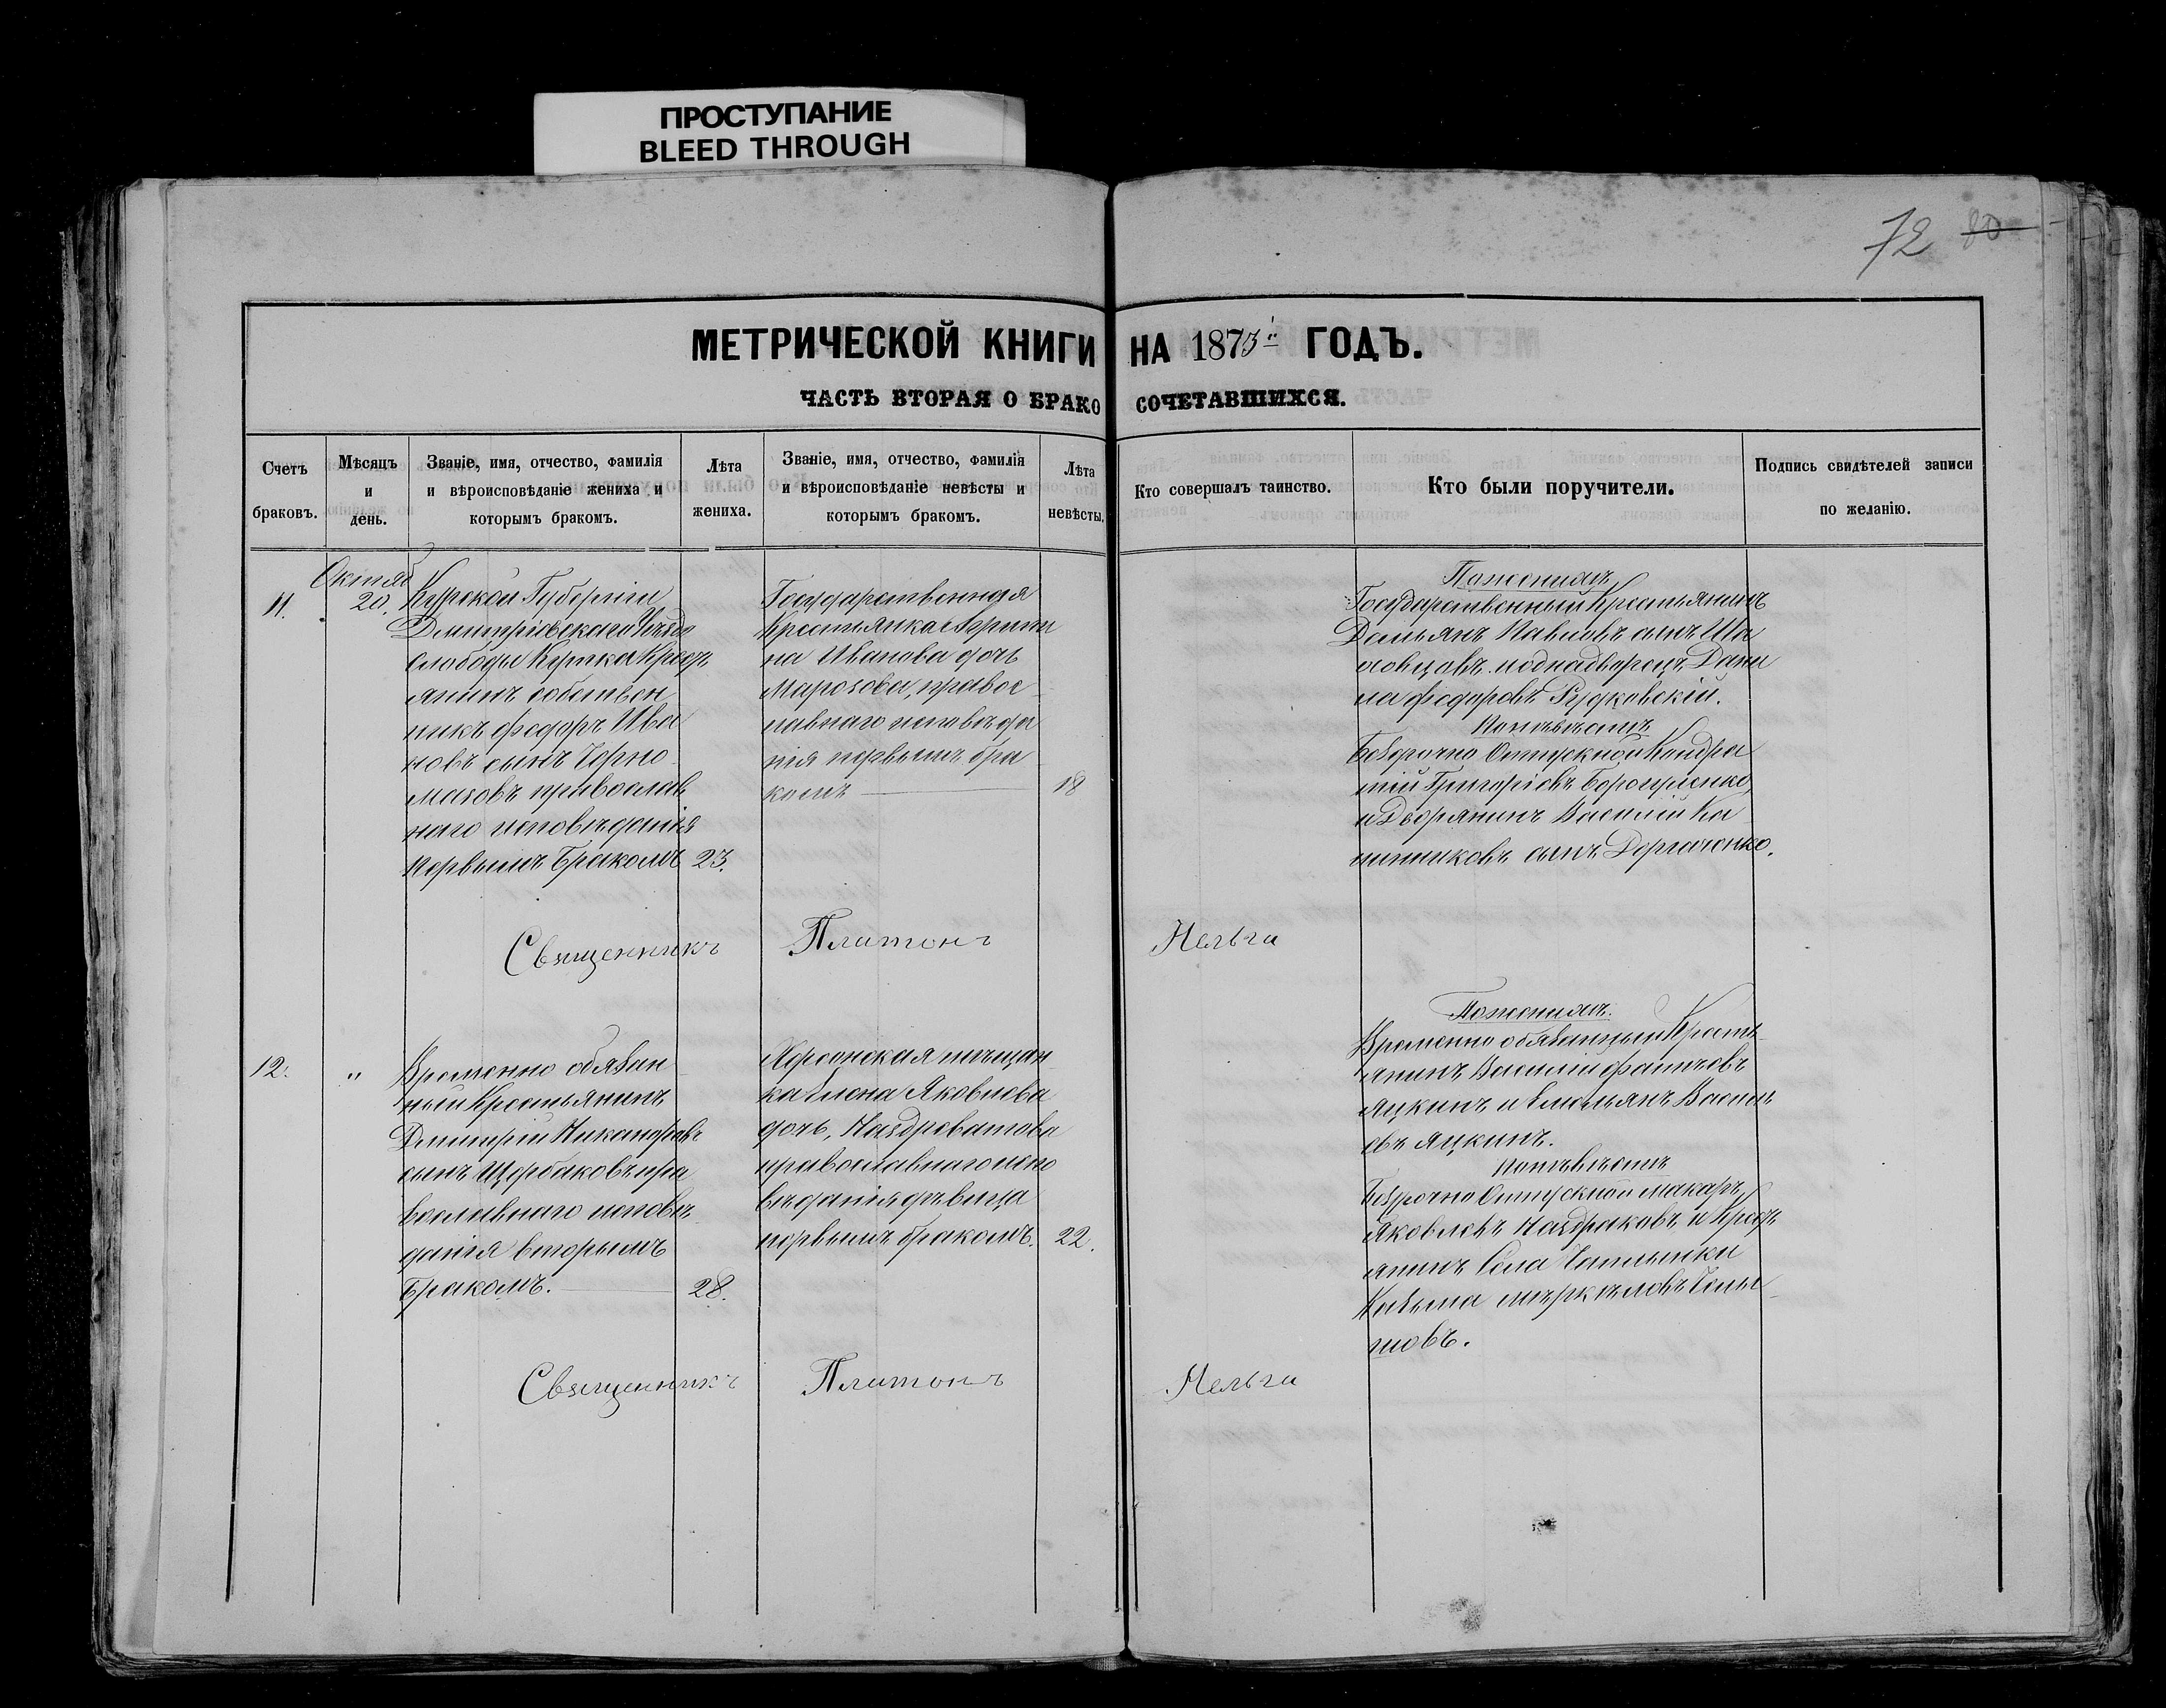 ПРОСТУПАНИЕ
BLEED THROUGH
72 80
МЕТРИЧЕСКОЙ КНИГИ НА 1873й ГОДЪ.
ЧАСТЬ ВТОРАЯ О БРАКОСОЧЕТАВШИХСЯ.
Счетъ браковъ.
Мѣсяцъ и день.
Званіе, имя, отчество, фамилія
и вѣроисповѣданіе жениха и
которымъ бракомъ.
Лѣта жениха.
Званіе, имя, отчество, фамилія
и вѣроисповѣданіе невѣсты и
которымъ бракомъ.
Лѣта невѣсты.
Кто совершалъ таинство.
Кто были поручители.
Подпись свидѣтелей записи
по желанію.
11.
Октяб
20.
Курской Губерніи
Дмитріевскаго Уѣзда
слободы Крест
янинъ собствен
никъ Федоръ Ива
новъ сынъ Черно
мазовъ православ
наго исповѣданія
Первымъ Бракомъ
23.
Государственная
Крестьянка
на Иванова дочь
Марозова, правос
лавнаго исповѣда
нія первымъ бра
комъ
18
Поженихѣ
Государственный Крестьянинъ
Демьянъ Павловъ сынъ Ша
повцовъ. Дани
ла Федоровъ Рудковскій.
Поневѣстѣ
Безсрочно Отпускной Кондра
тій Григоріевъ
и Дворянинъ Василій Ка
линниковъ сынъ Дергаченко.
Священникъ Платонъ Нельга
12.
"
Временно обязан
ный Крестьянинъ
Дмитрій Никаноровъ
сынъ Щербаковъ пра
вославнаго исповѣ
данія вторымъ
Бракомъ.
28.
Херсонская мѣщан
ка Елена Яковлева
дочь, Наздреватова
православнаго испо
вѣданія дѣвица
первымъ бракомъ.
22.
Поженихѣ.
Временно обязанный Кресть
янинъ Василій Фатѣевъ
Яцкинъ и Емельянъ Васил
евъ Яцкинъ.
Поневѣстѣ
Безсрочно Отпускной Макаръ
Яковлевъ и Крест
янинъ Села
Козьма
шовъ.
Священникъ Платонъ Нельга